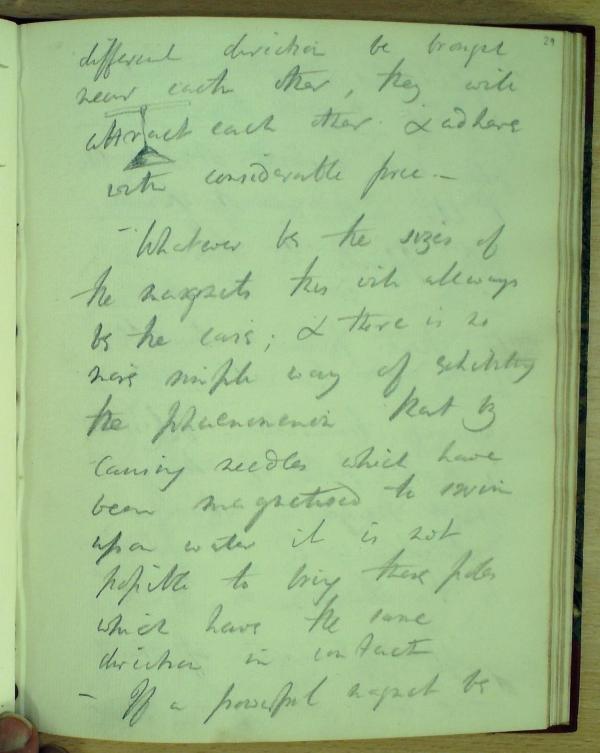 29
different direction be brought
near each other, they will
attract each other & adhere
with considerable force. –
– Whatever be the sizes of
the magnets this will allways
be the case; & there is no
more simple way of exhibiting
the phaenomenon than by
causing needles which have
been magnetised to swim
upon water it is not
possible to bring these poles
which have the same
direction in contact
– If a powerful magnet be